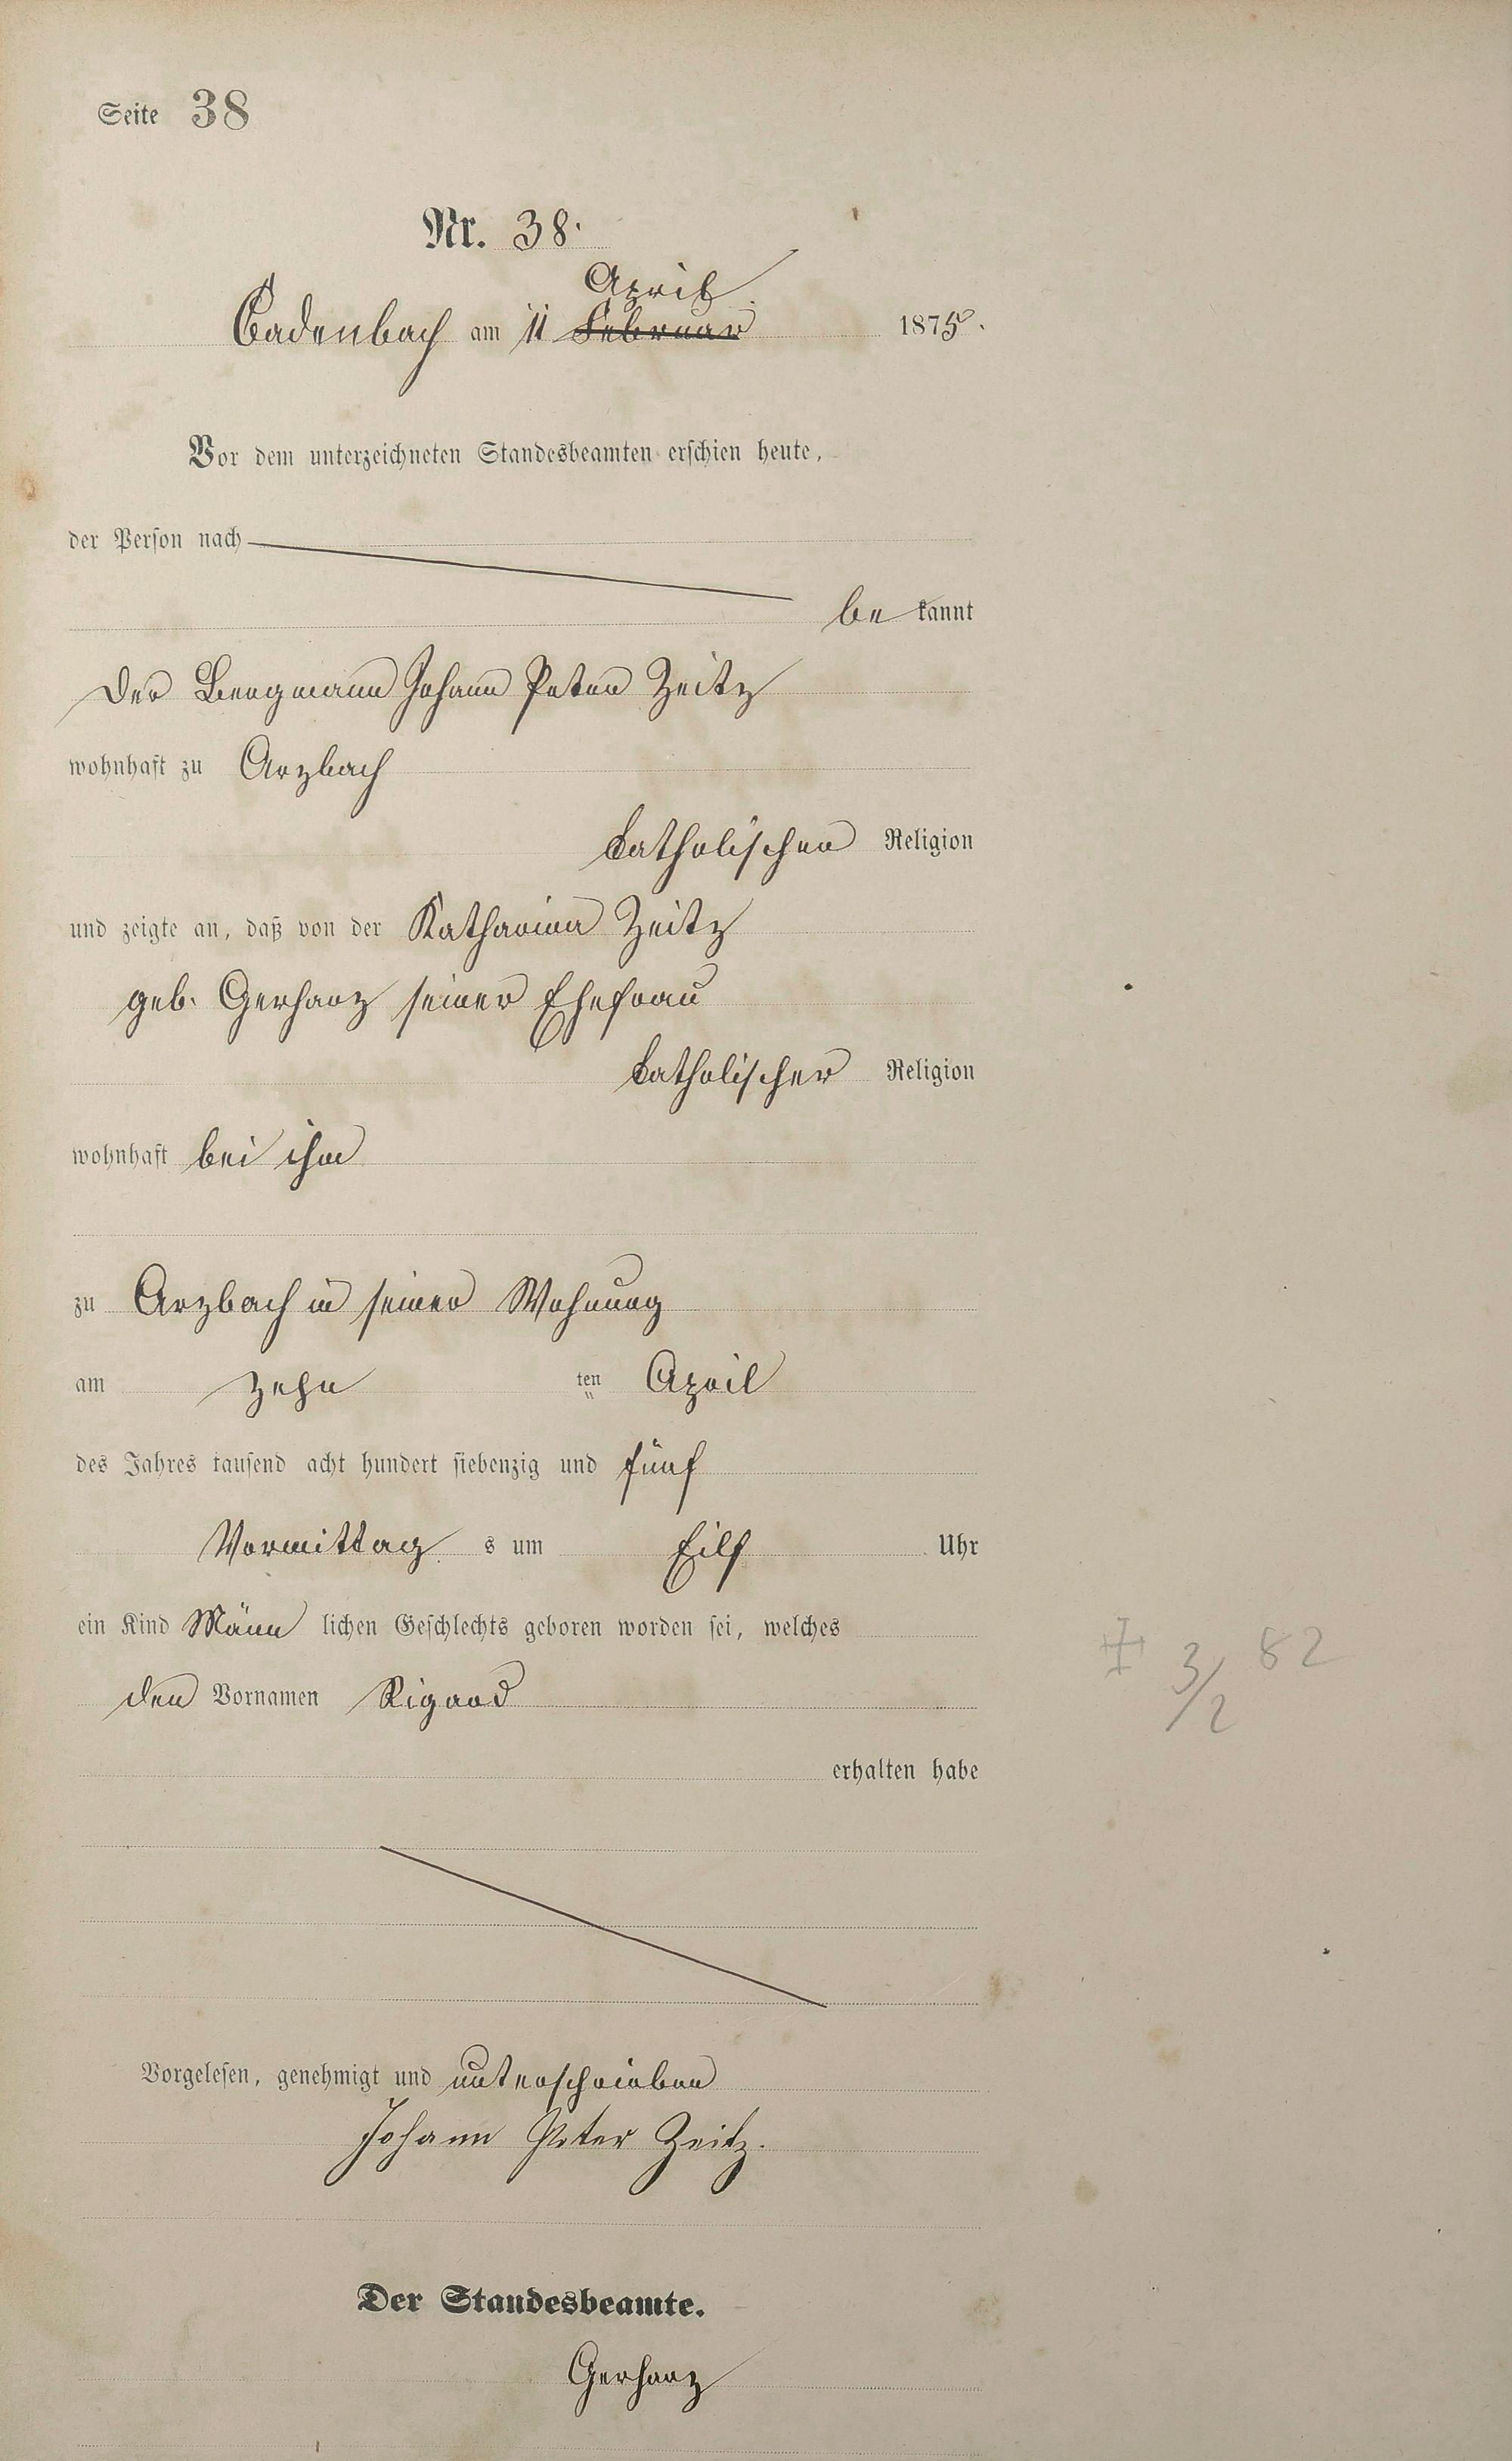 Seite 38
Nr. 38.
April
Cadenbach am 11 Februar 1875.
Vor dem unterzeichneten Standesbeamten erschien heute,
der Person nach
be kannt
der Bergmann Johann Peter Zeitz
wohnhaft zu Arzbach
katholischer Religion
und zeigte an, daß von der Katharina Zeitz
geb. Gerharz seiner Ehefrau
katholischer Religion
wohnhaft bei ihm
zu Arzbach in seiner Wohnung
am zehn ten April
des Jahres tausend acht hundert siebenzig und fünf
Vormittag s um Eilf Uhr
ein Kind Männ lichen Geschlechts geboren worden sei, welches
† 3/2 82
den Vornamen Rigard
erhalten habe
Vorgelesen, genehmigt und unterschrieben
Johann Peter Zeitz.
Der Standesbeamte.
Gerharz